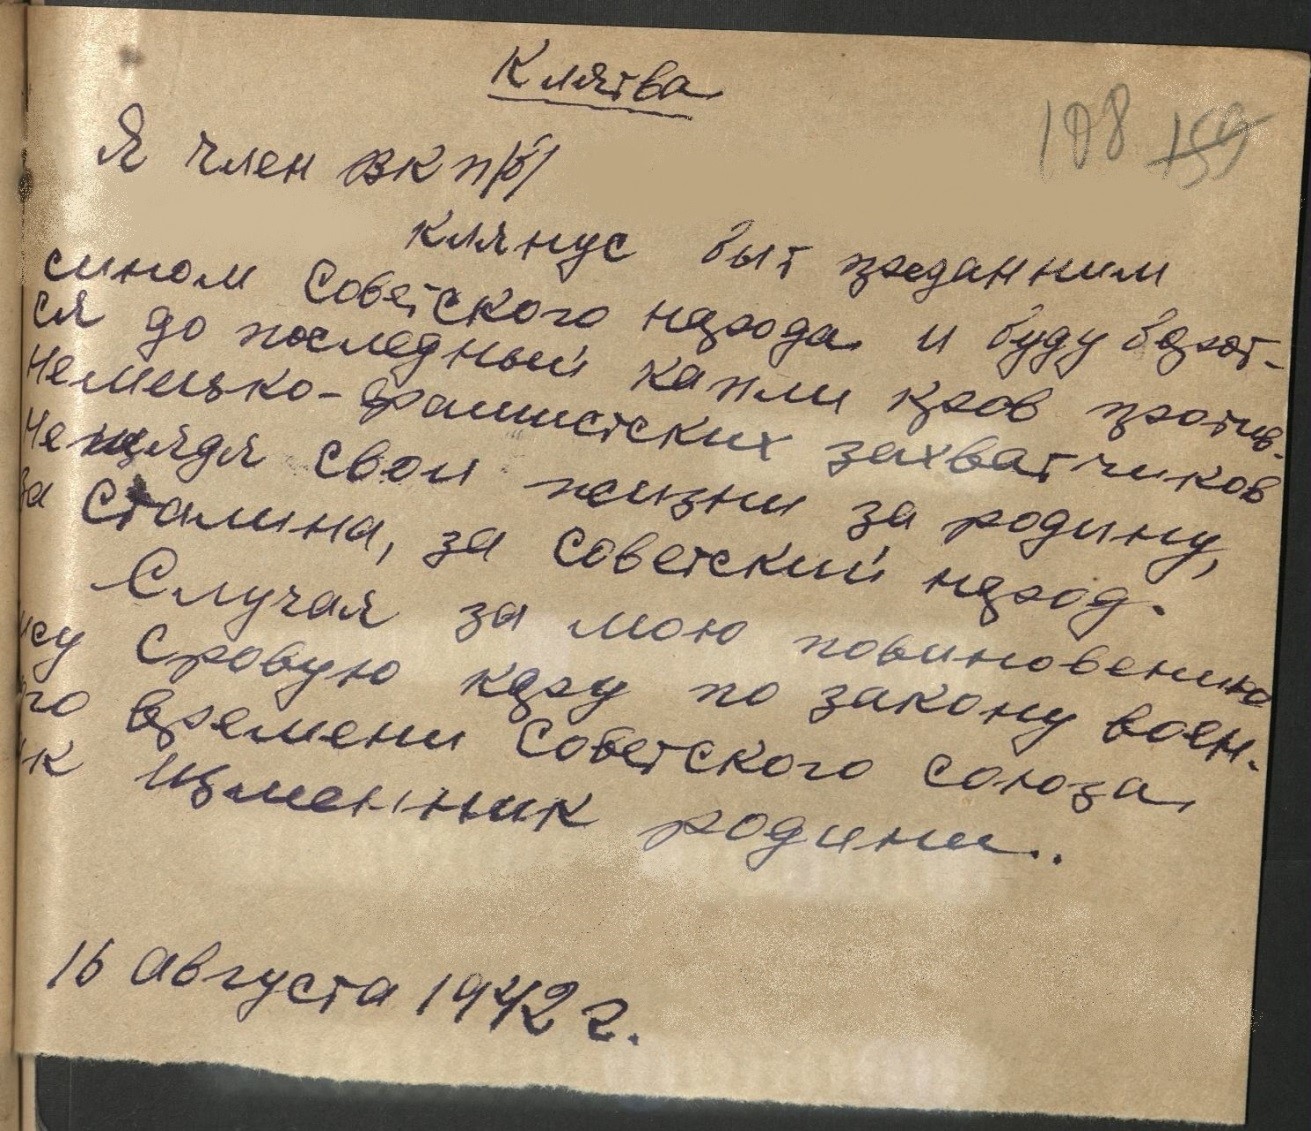 Клятва
108 159
Я член ВКП/б/
клянус быт преданним
сином Советского народа и буду борот-
ся до последный капли кров против
немецько-фашистских захватчиков
не щядя свои жизни за родину,
за Сталина, за Советский народ.
Случая за мою повиновению
су Сровую кару по закону воен-
го времени Советского союза,
к Изменник родини..
16 августа 1942 г.